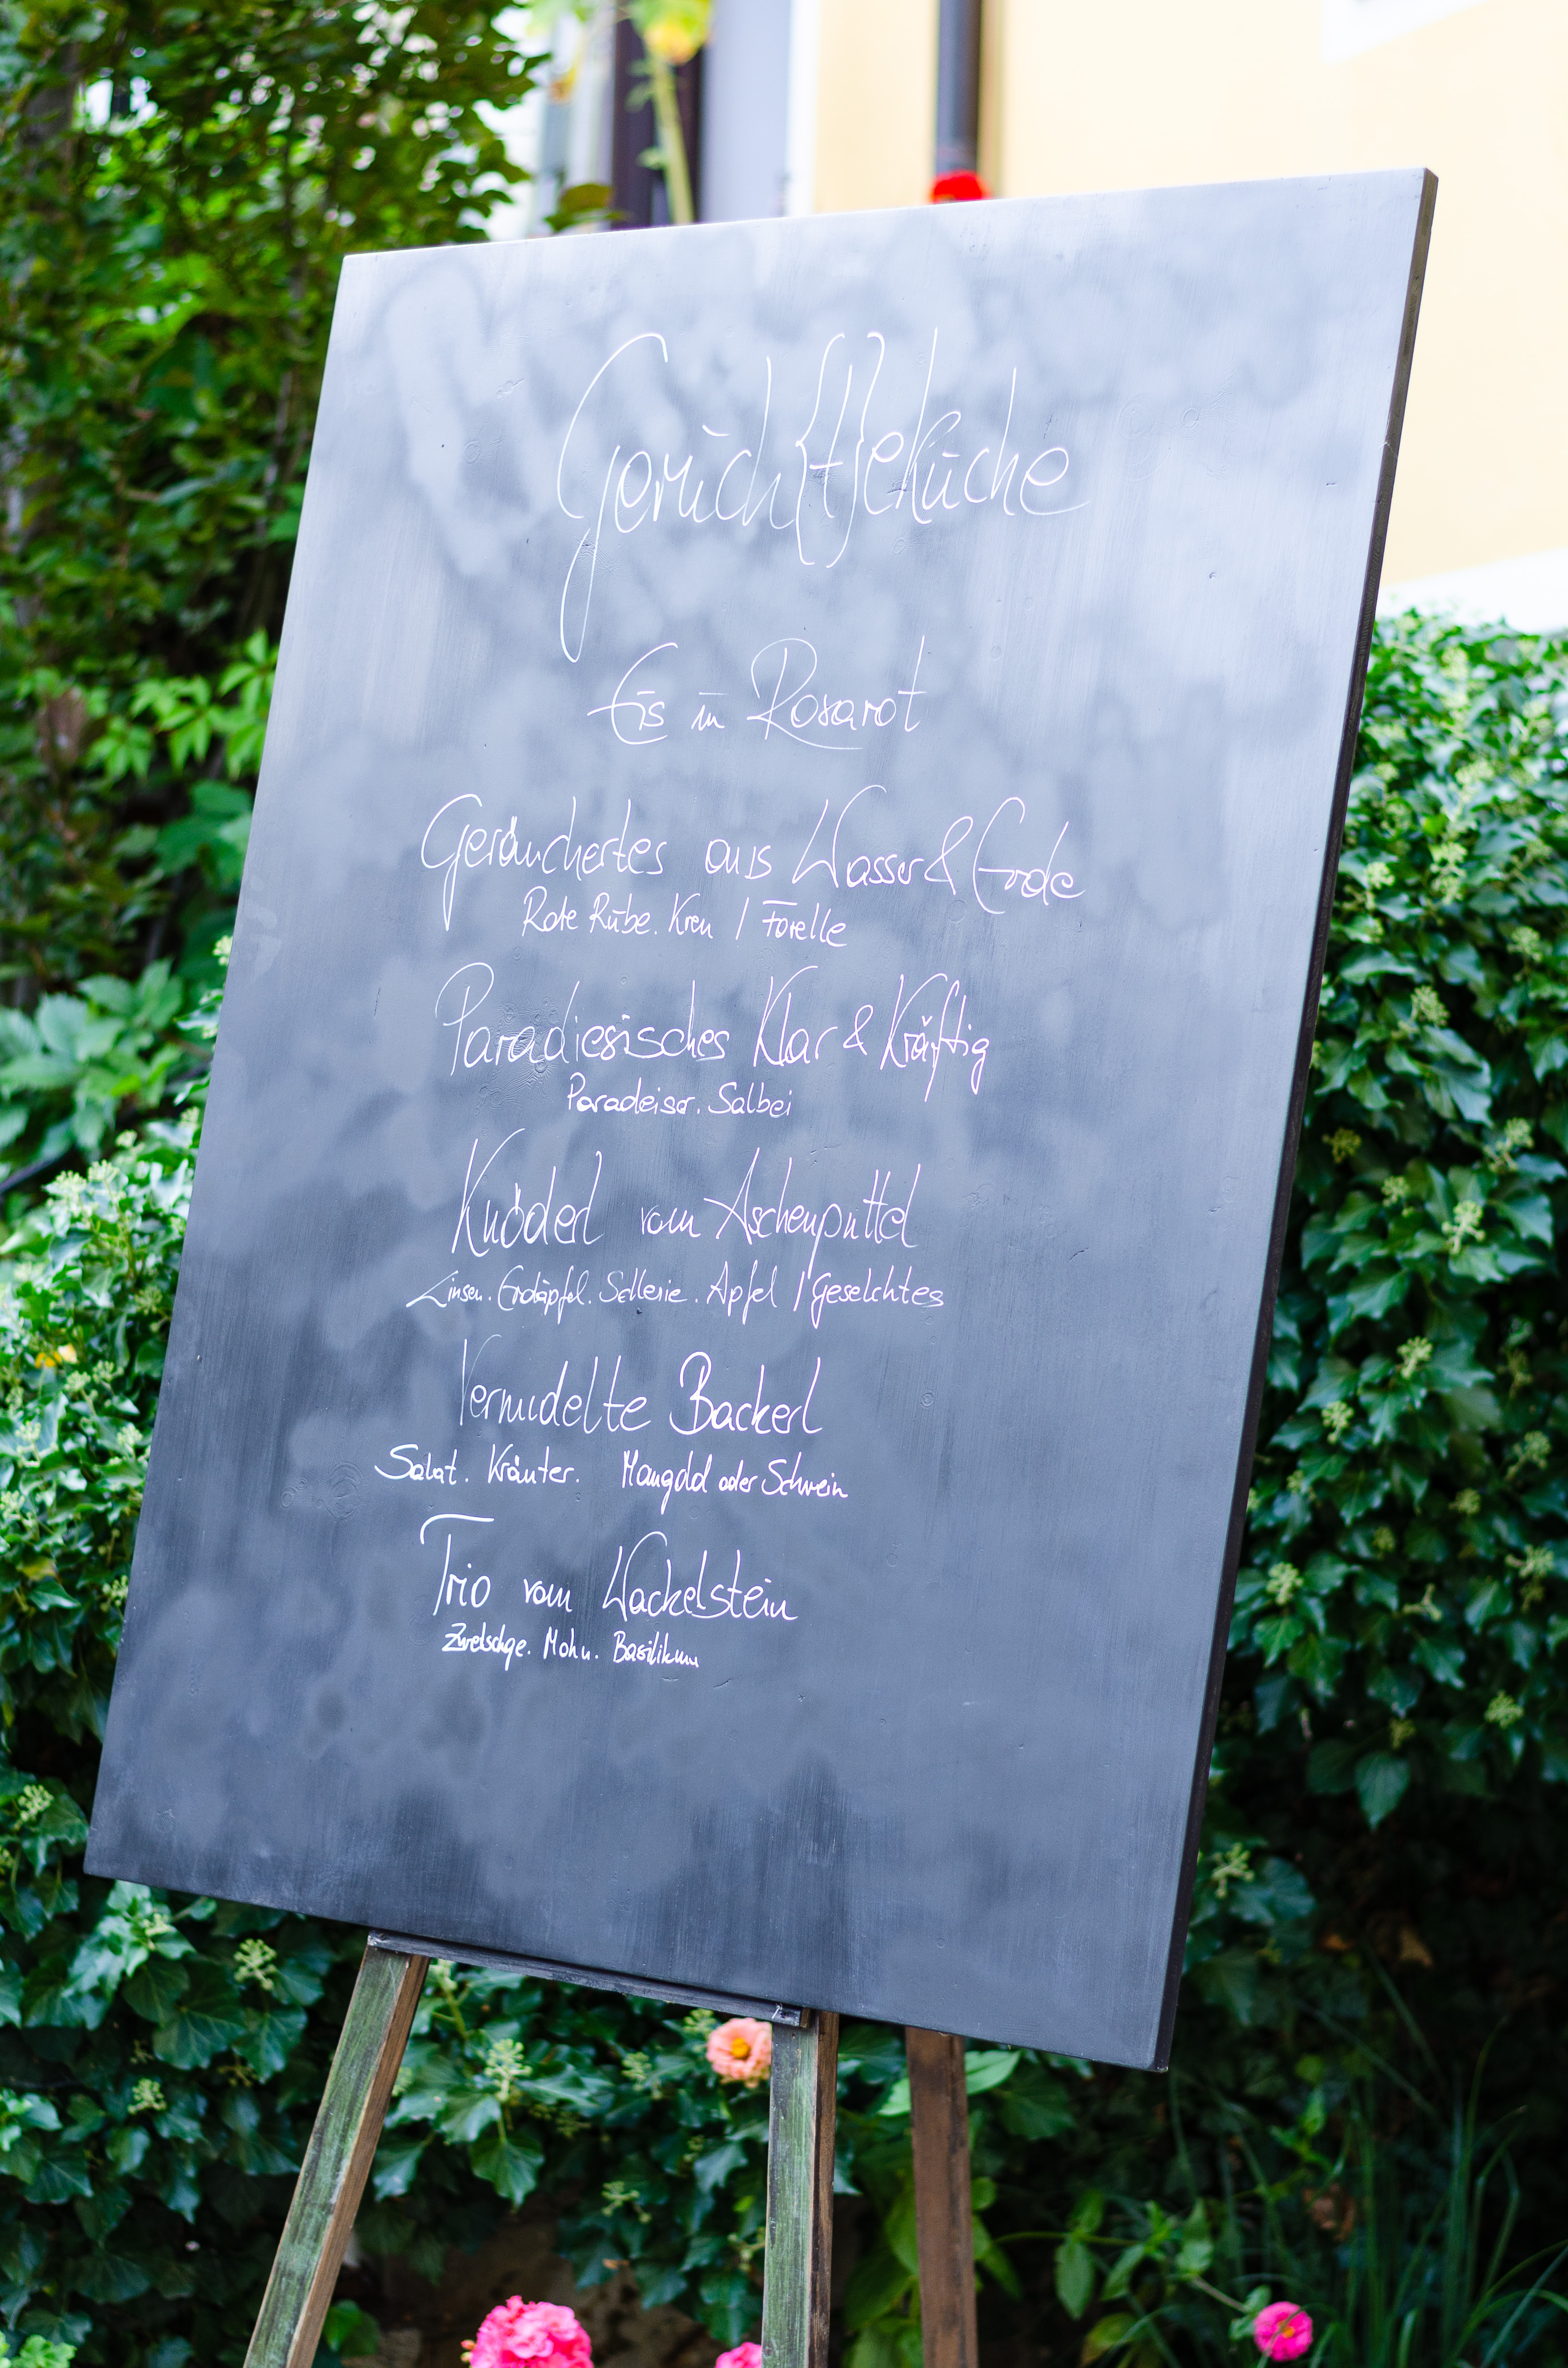 Gerüch{t}eküche
Eis in Rosarot
Geräuchertes aus Wasser & Erde
Rote Rübe. Kren / Forelle
Paradiesisches Klar & Kräftig
Paradeiser. Salbei
Knöderl vom Aschenputtel
Linsen. Erdäpfel. Sellerie. Apfel / Geselchtes
Vernudelte Backerl
Salat. Kräuter. Mangold oder Schwein
Trio vom Wackelstein
Zwetschge. Mohn. Basilikum